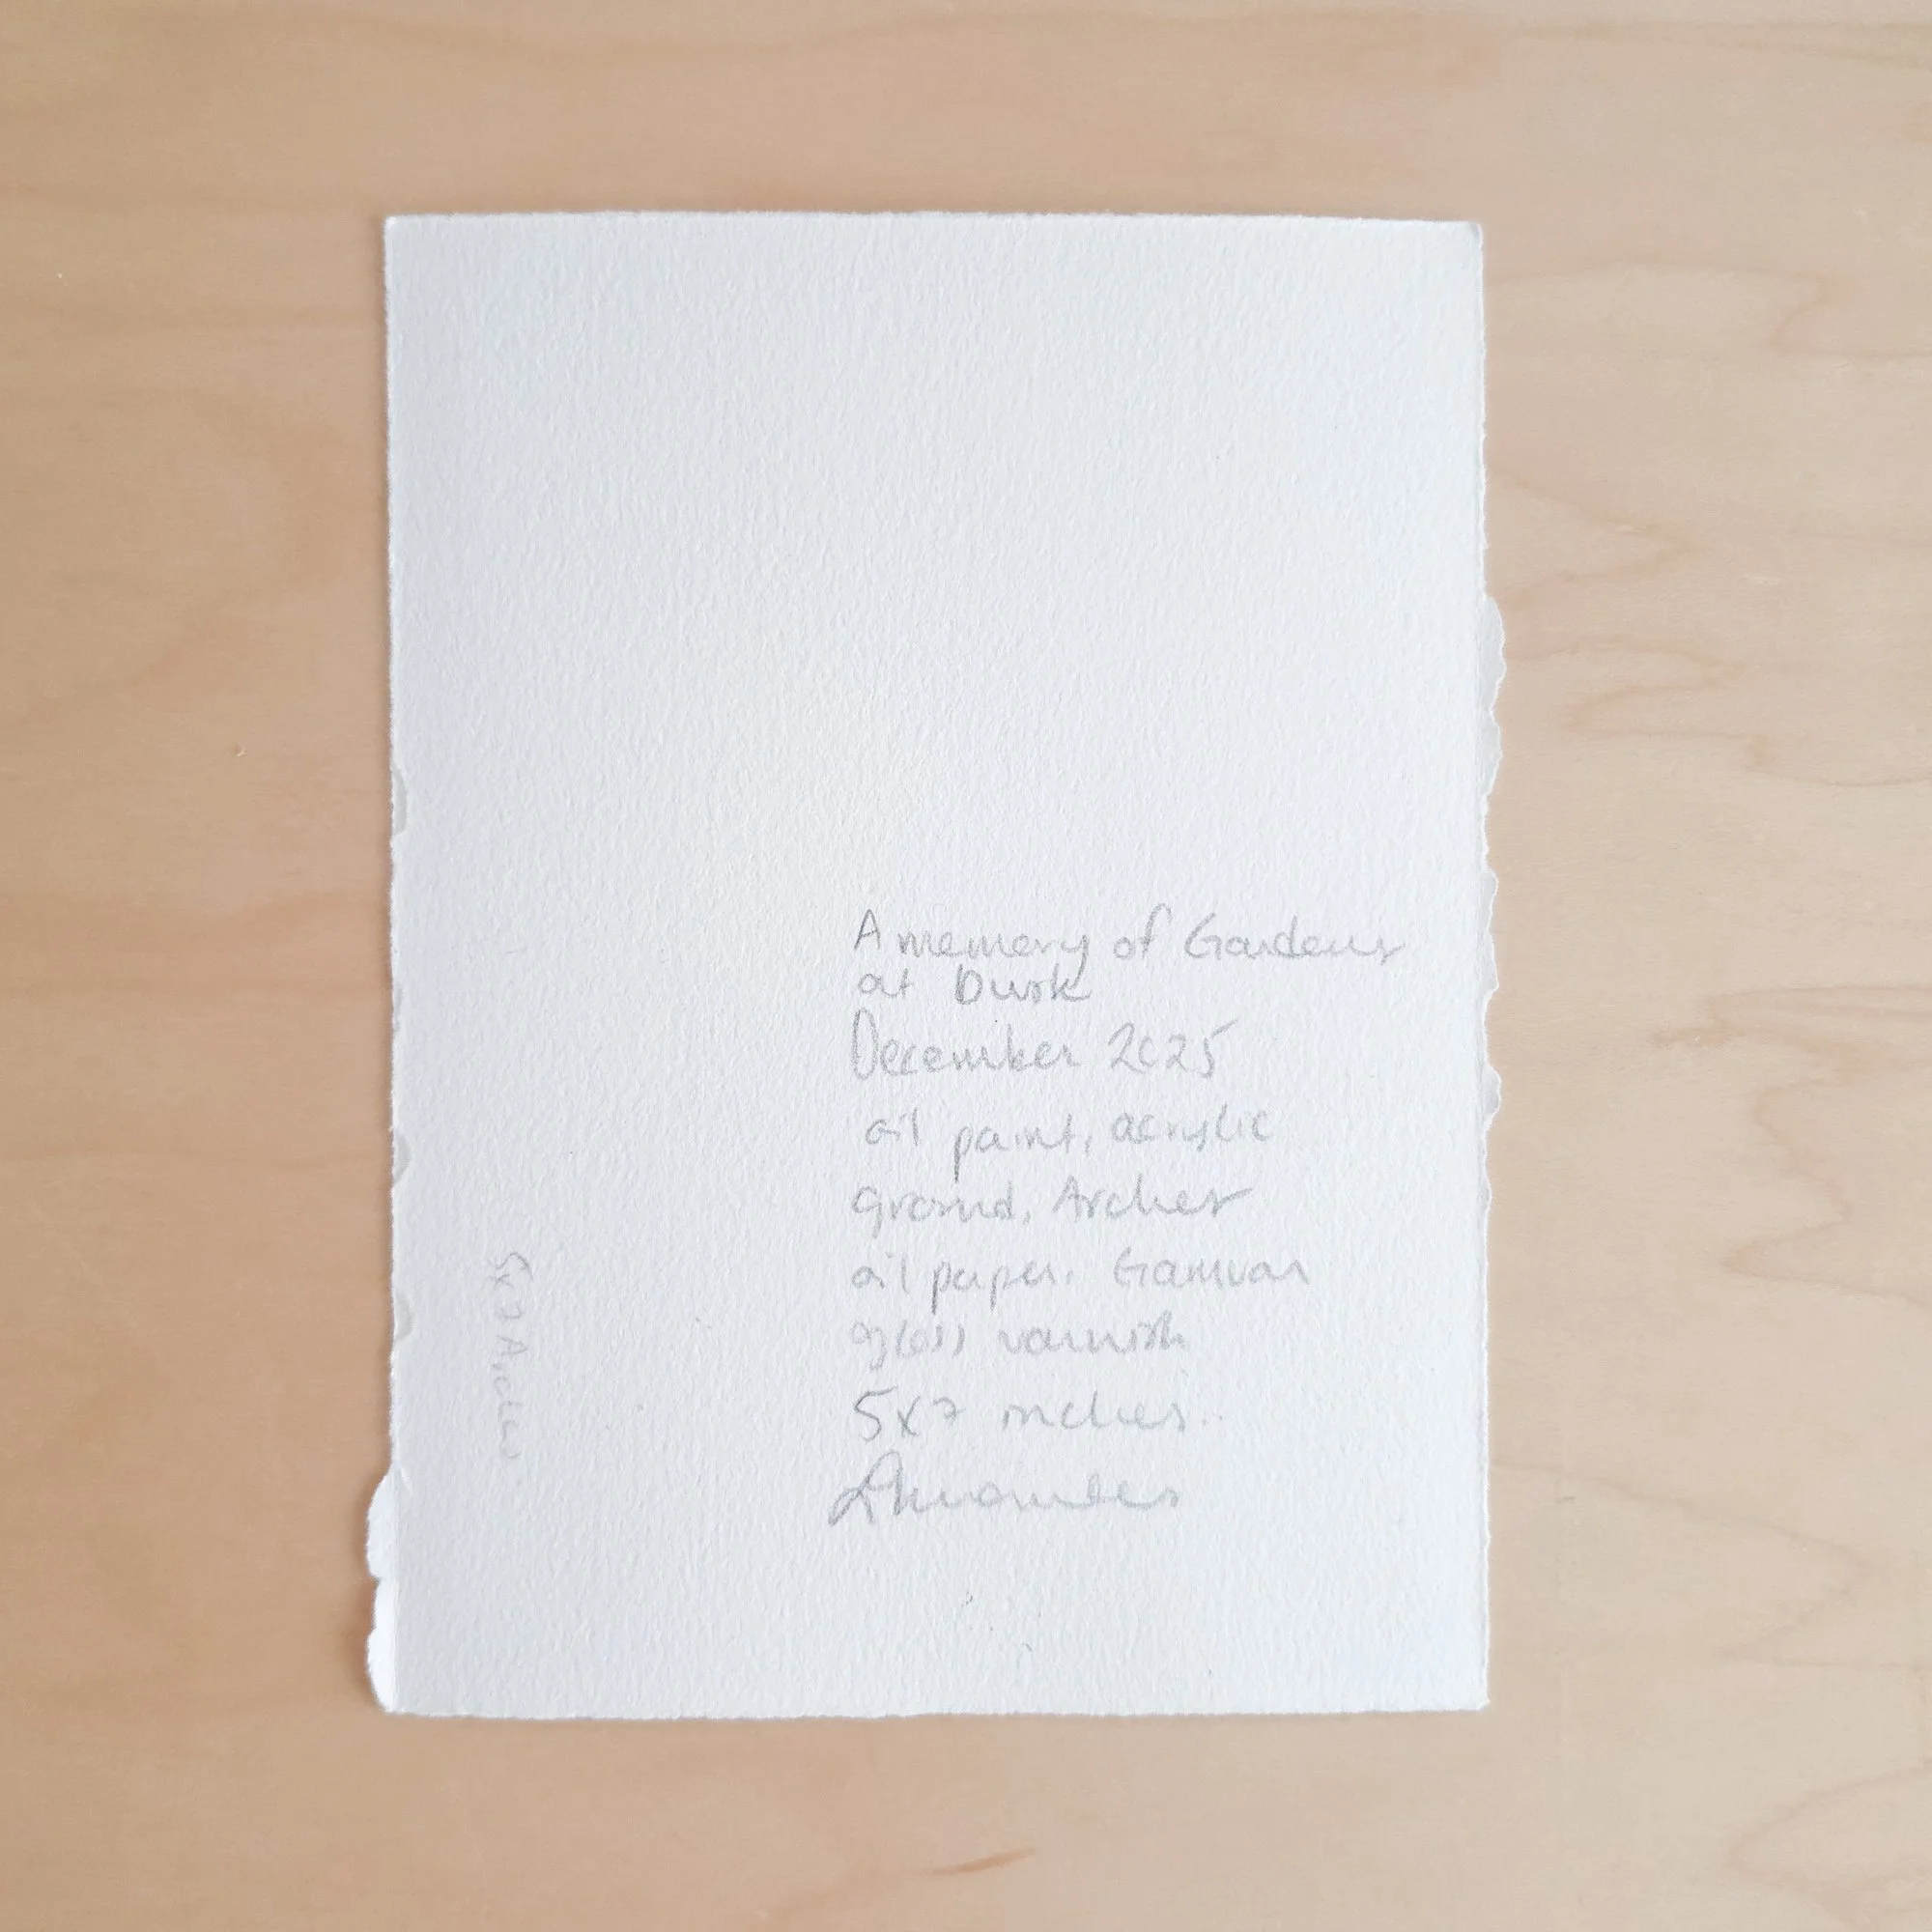 A memory of Gardens
at Dusk
December 2025
oil paint, acrylic
ground, Arches
oil paper. Gamvar
gloss varnish
5x7 inches
5x7 Arches